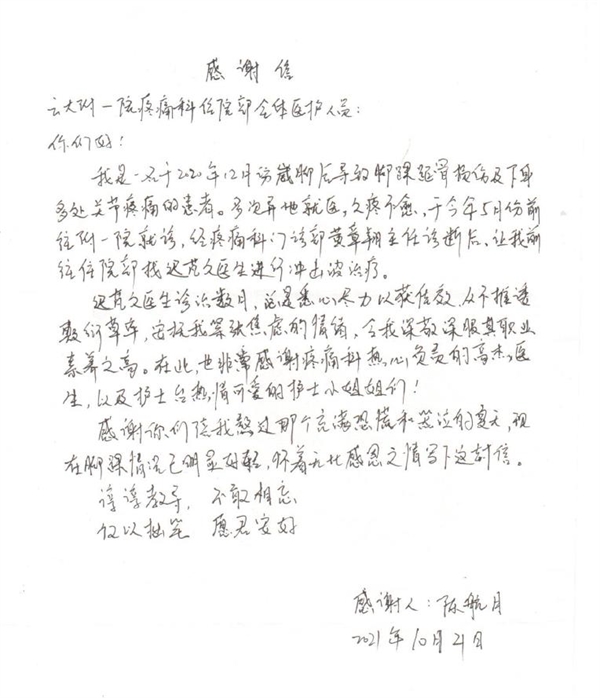 感谢信
云大附一院疼痛科住院部全体医护人员：
你们好！
我是一名于2020年12月份崴脚后导致脚踝距骨损伤及下身
多处关节疼痛的患者。多次异地就医，久疼不愈，于今年5月份前
往附一院就诊，经疼痛科门诊部黄章翔主任诊断后，让我前
往住院部找 医生进行冲击波治疗。
医生诊治数月，总是悉心尽力以获佳效，从不推诿
敷衍草率，安抚我紧张焦虑的情绪，令我深敬深服其职业
素养之高。在此，也非常感谢疼痛科热心负责的高杰医
生，以及护士台热情可爱的护士小姐姐们！
感谢你们陪我熬过那个充满恐慌和哭泣的夏天，现
在脚踝情况已明显好转，怀着无比感恩之情写下这封信。
谆谆教导，不敢相忘
仅以拙笔 愿君安好
感谢人：陈航月
2021年10月21日